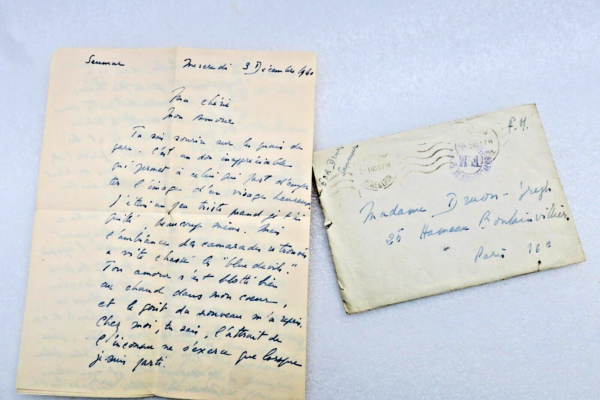 Saumur Mercredi 3 Décembre 1940
Ma chérie
Mon amour
Ton sourire sur le quai de
gare. C'est un don inappréciable
qui permet à celui qui part d'empor-
ter l'image d'un visage heureux.
J'étais un peu triste quand je t'ai
quitté beaucoup même. Mais
l'ambiance, les camarades retrouvés
a vite chassé les "blue devils".
Ton amour s'est blotti bien
au chaud dans mon coeur,
et le goût du nouveau m'a repris.
Chez moi, tu sais, l'attrait de
l'inconnu ne s'exerce que lorsque
je suis parti.
F.M.
Saumur
Madame Druon-
26 Hameau Boulainvilliers
Paris 16e